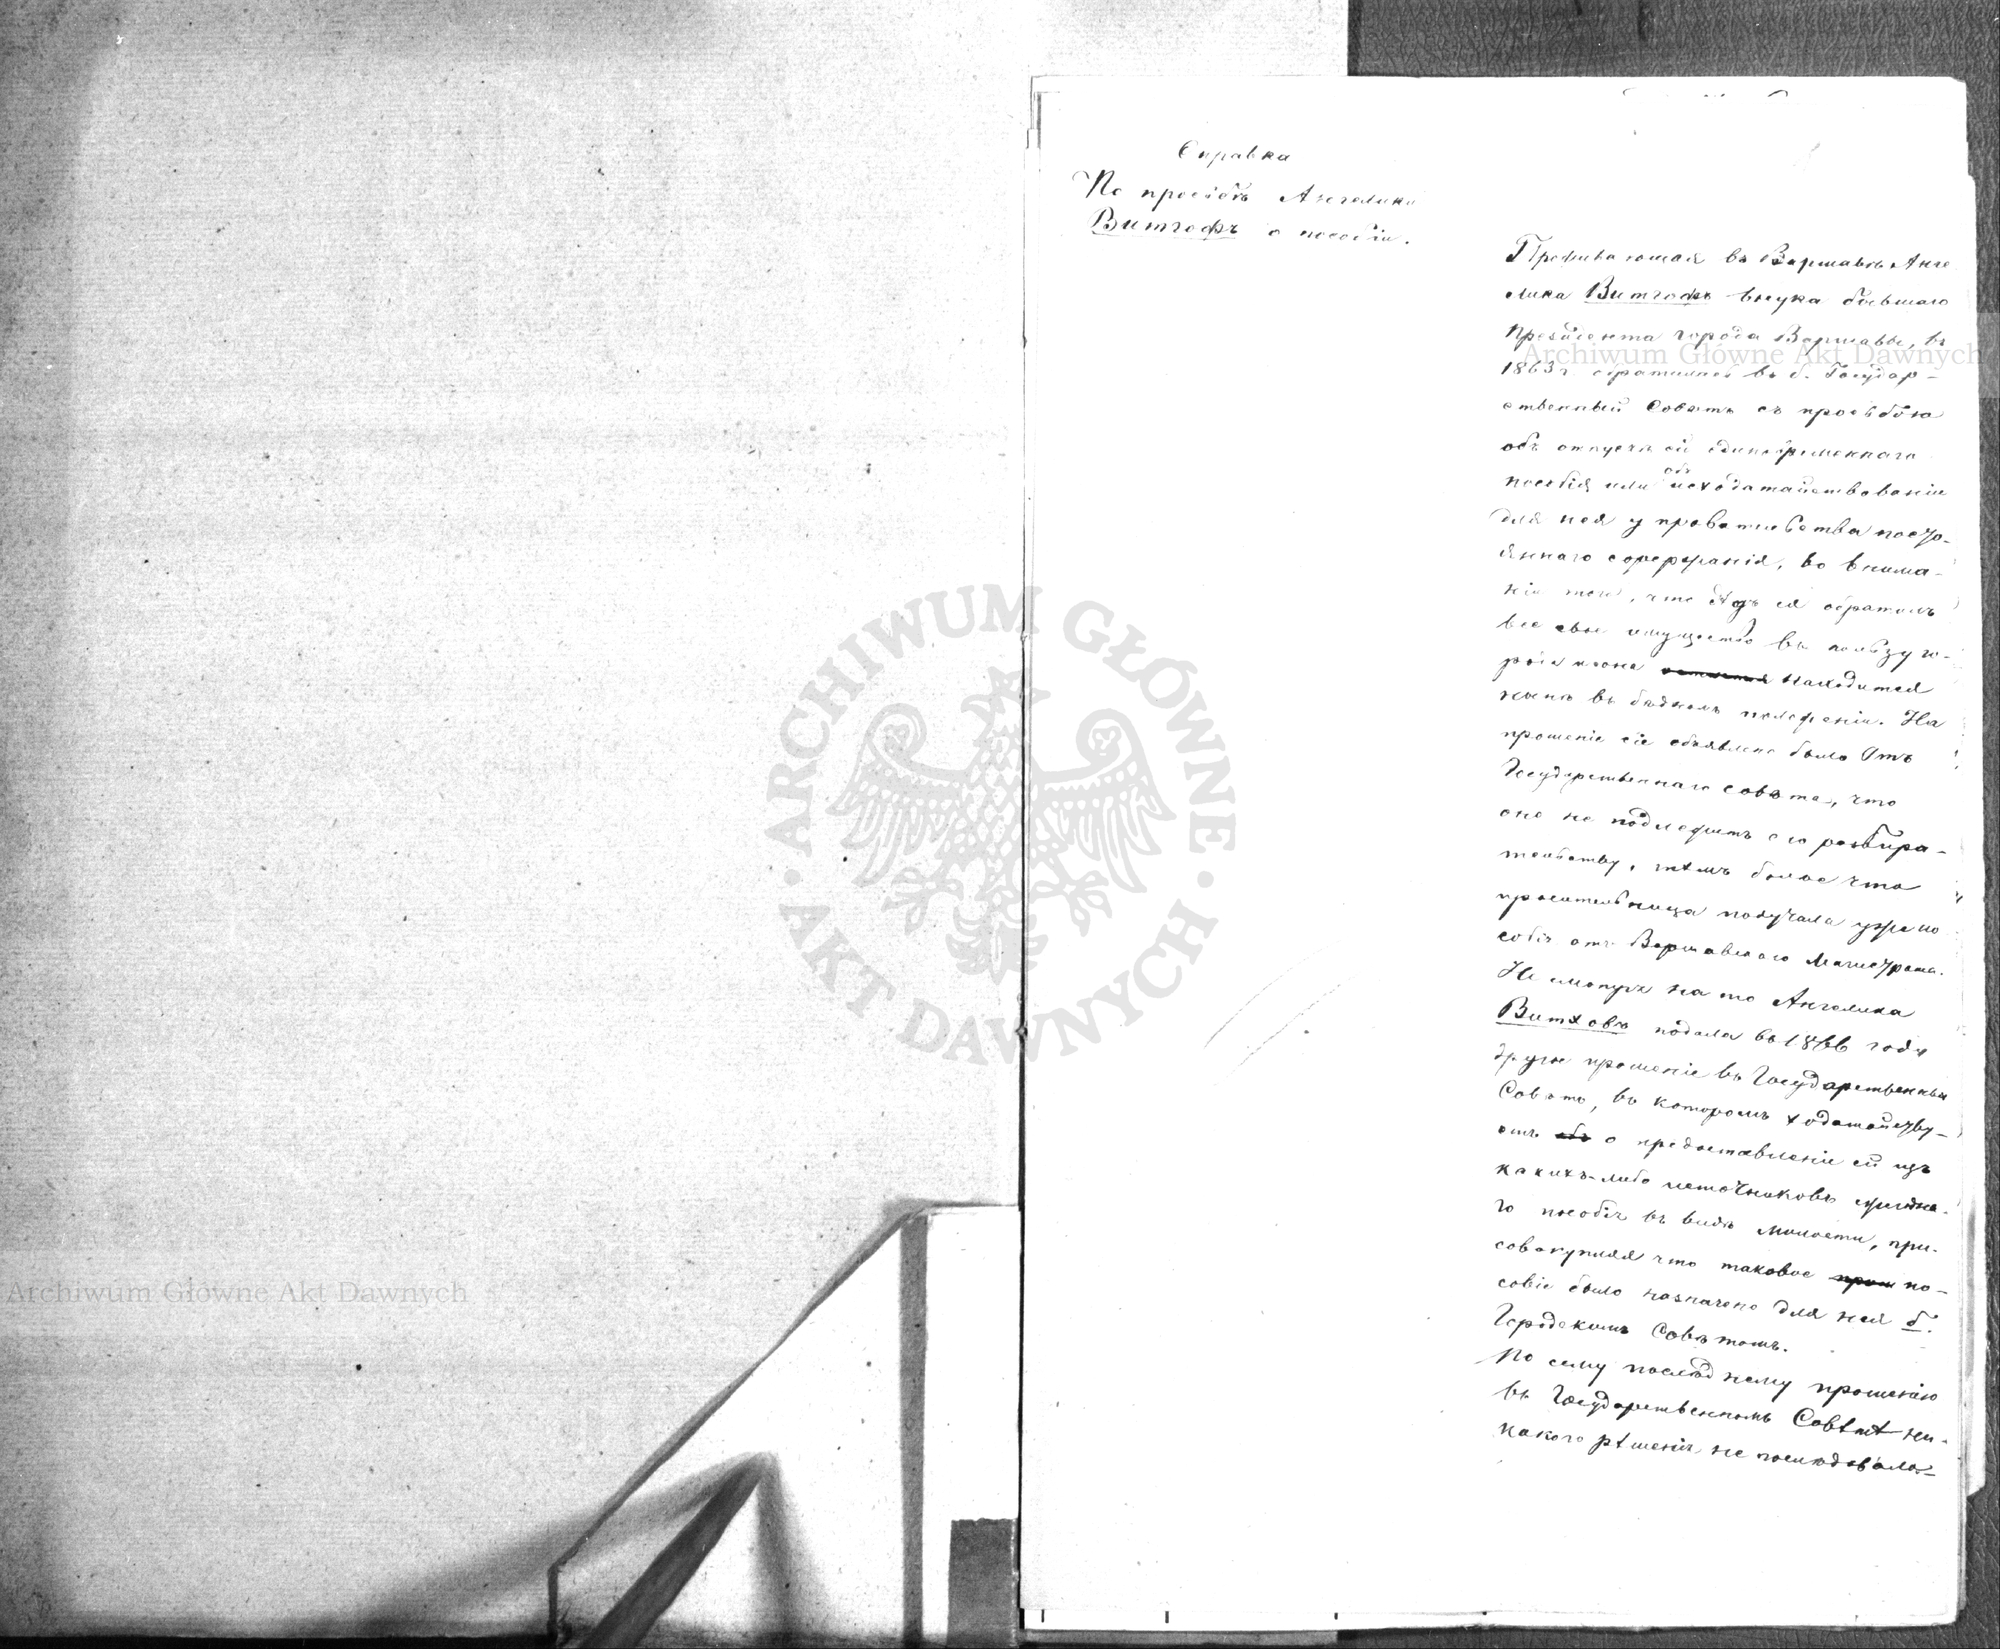 Справка
По просьбѣ Ангелики
Витгофъ о пособіи.
Проживающая въ Варшавѣ Анге
лика Витгофъ внука бывшаго
Президента города Варшавы, въ
1863 г. обратилась въ б. Государ-
ственный Совѣтъ съ просьбою
объ отпускѣ ей единовременнаго
пособія или объ исходатайствованіи
для нея у правительства посто-
яннаго содержанія, во внима-
ніи того, что дѣдъ ея обратилъ
все свое имущество въ пользу го-
рода и она находится
нынѣ въ бѣдномъ положеніи. На
прошеніе сіе объявлено было отъ
Государственнаго Совѣта, что
оно не подлежитъ его разбира-
тельству, тѣмъ болѣе что
просительница получала уже по
собіе отъ Варшавскаго Магистрата.
Не смотря на то Ангелика
Витховъ подала въ 1866 году
другое прошеніе въ Государственный
Совѣтъ, въ которомъ ходатайству-
етъ объ о предоставленіи ей изъ
какихъ-либо источниковъ
го пособія въ видѣ милости, при-
совокупляя что таковое по-
собіе было назначено для нея б.
Городскимъ Совѣтомъ.
По сему послѣднему прошенію
въ Государственномъ Совѣтѣ ни-
какого рѣшенія не послѣдовало
Archiwum Główne Akt Dawnych
ARCHIWUM GŁÓWNE
AKT DAWNYCH
Archiwum Główne Akt Dawnych